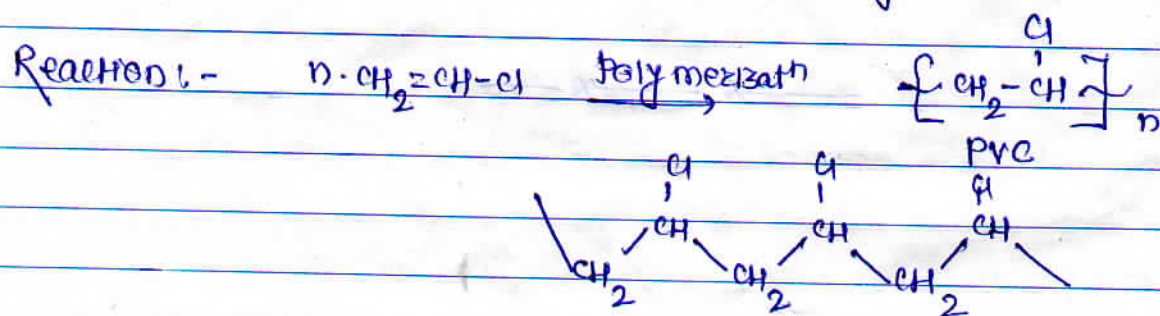 Cl
Reaction:- n·CH2=CH-Cl Polymerizatn [CH2-CH]n
PVC
Cl Cl Cl
CH CH CH
CH2 CH2 CH2